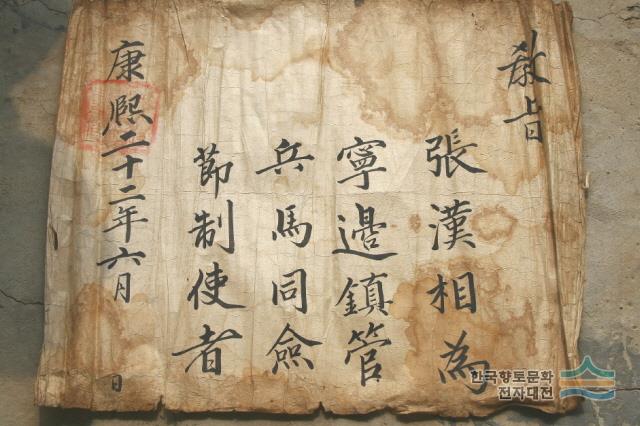 教旨
張漢相為
寧邊鎮管
兵馬同僉
節制使者
康熙二十二年六月 日
한국향토문화
전자대전